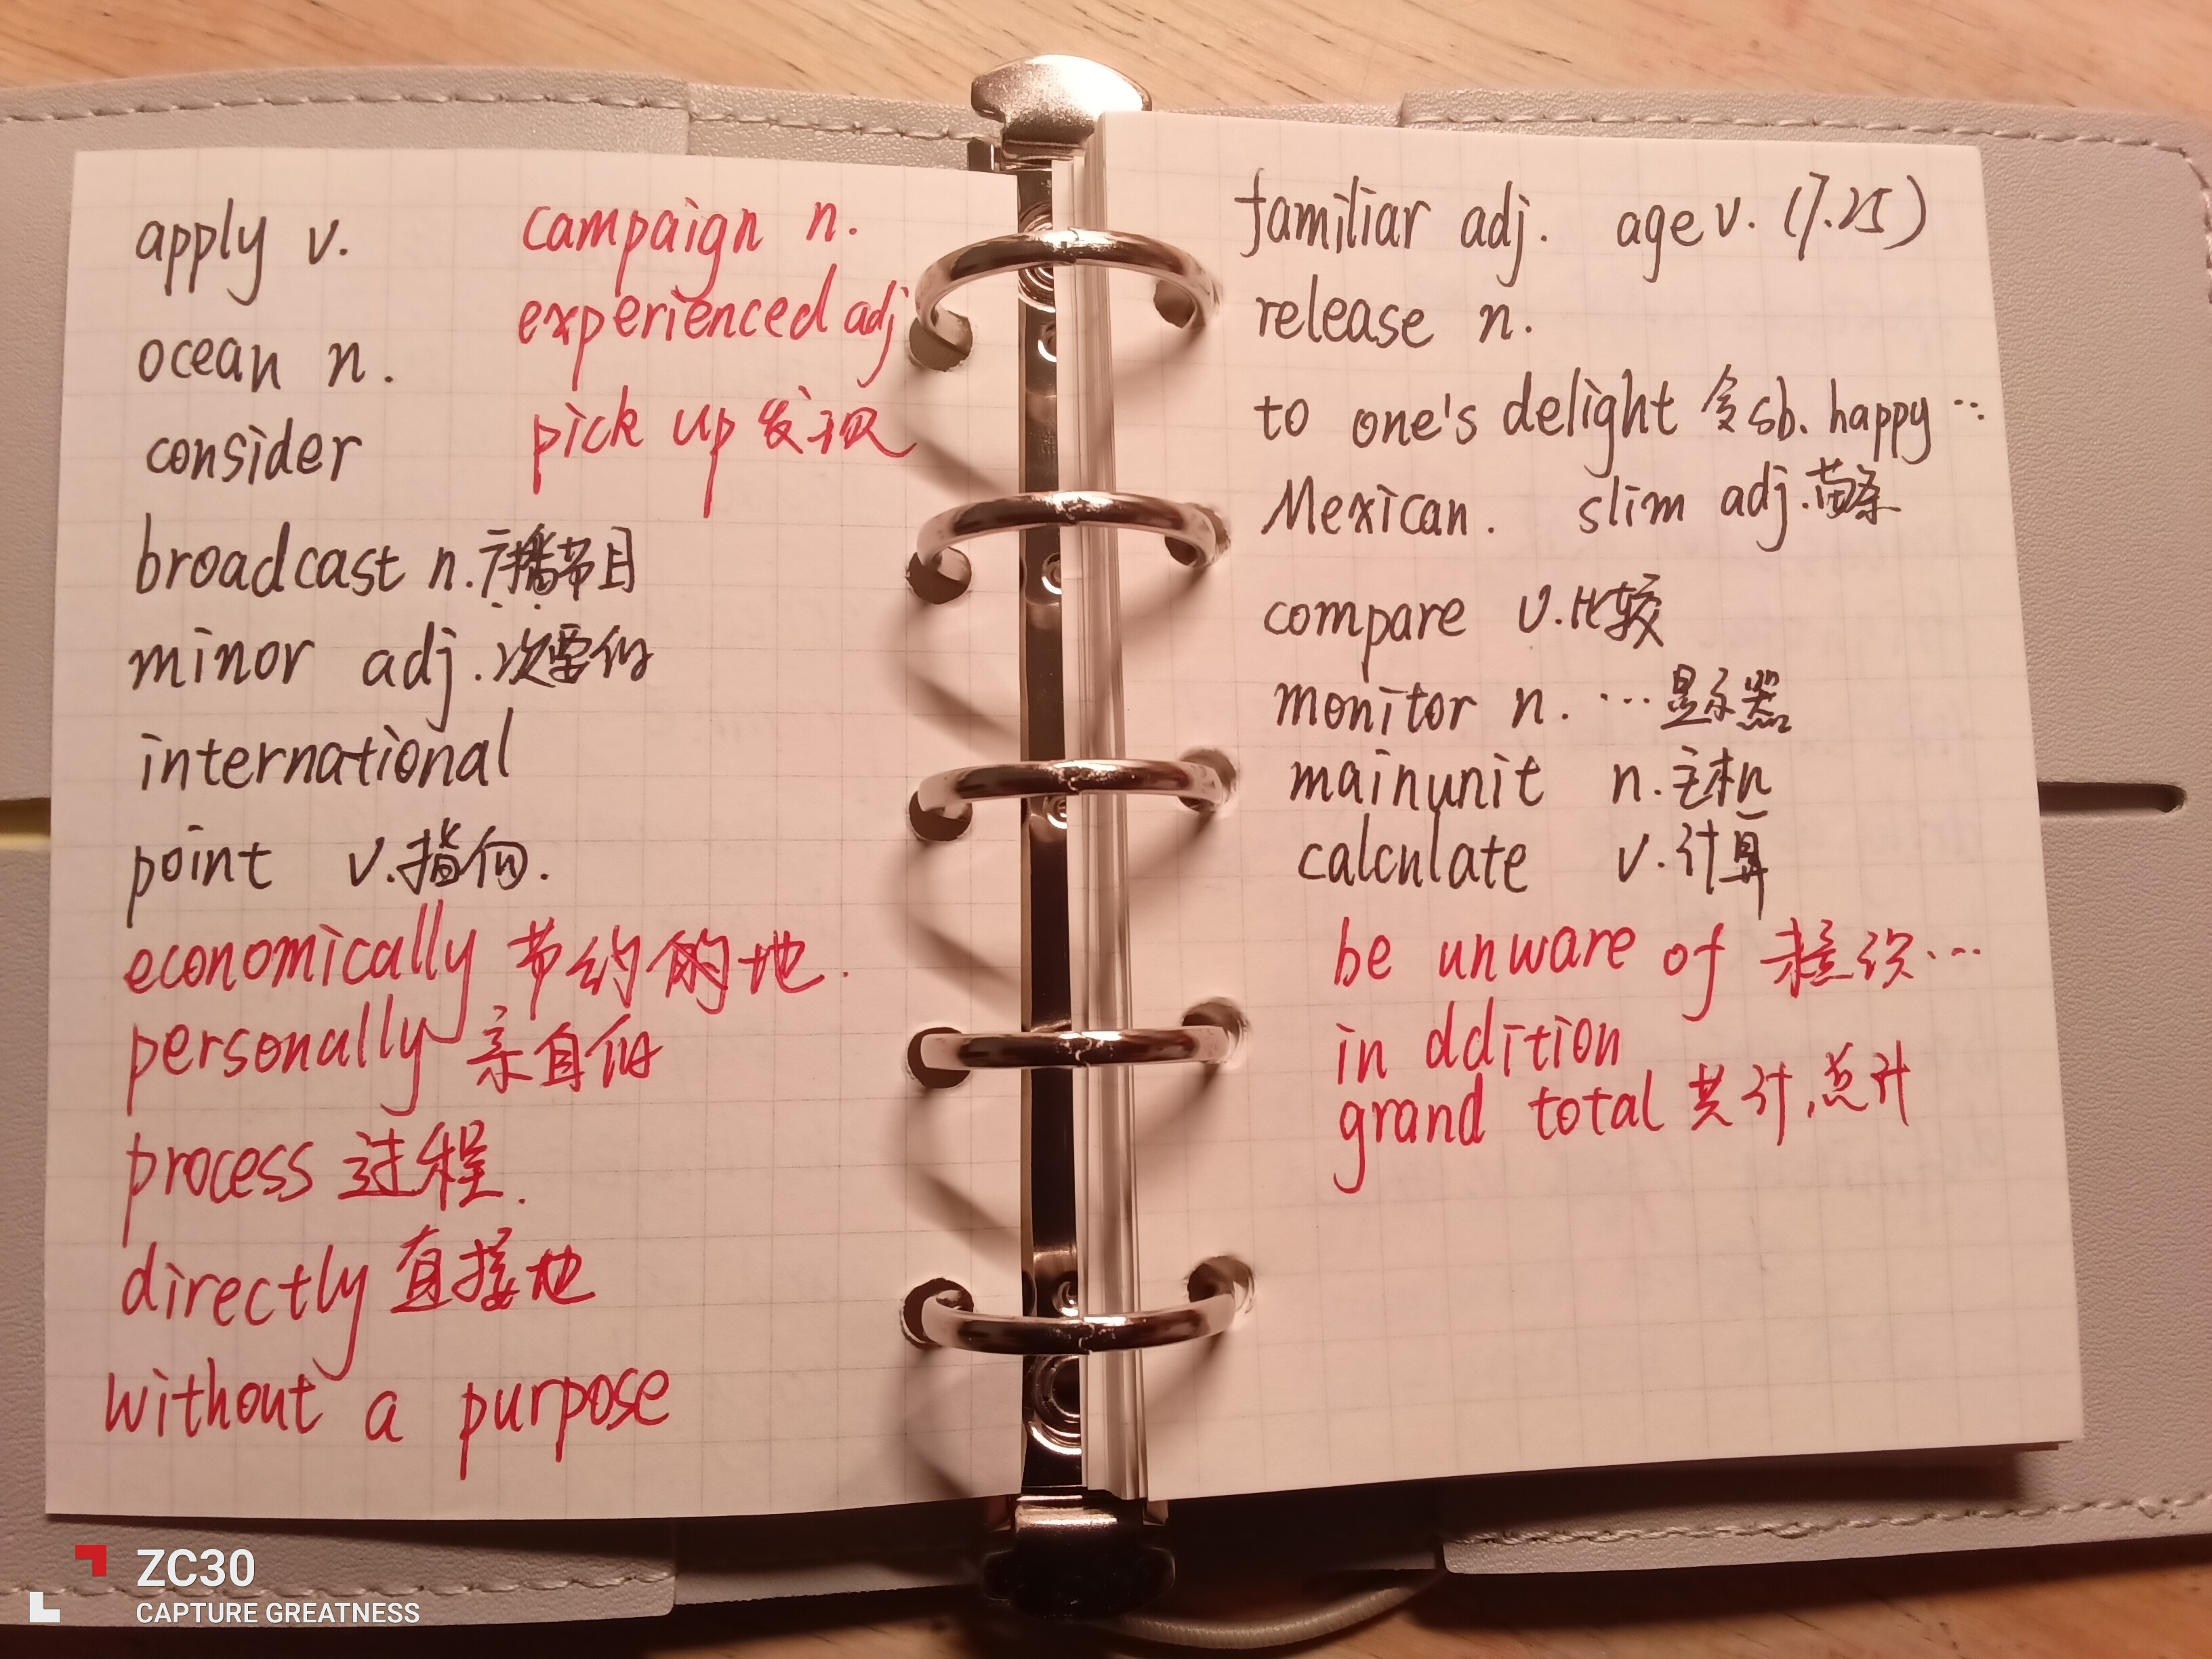 apply v.
campaign n.
experienced adj
ocean n.
pick up 发现
consider
broadcast n.广播节目
minor adj.次要的
international
point v.指向.
economically 节约的地.
personally 亲自的
process 过程.
directly 直接地
without a purpose
familiar adj. age v. (7.25)
release n.
to one's delight 令sb. happy …
Mexican. slim adj.苗条
compare v.比较
monitor n. …显示器
mainunit n.主机
calculate v.计算
be unware of …
in ddition
grand total 共计,总计
ZC30
CAPTURE GREATNESS